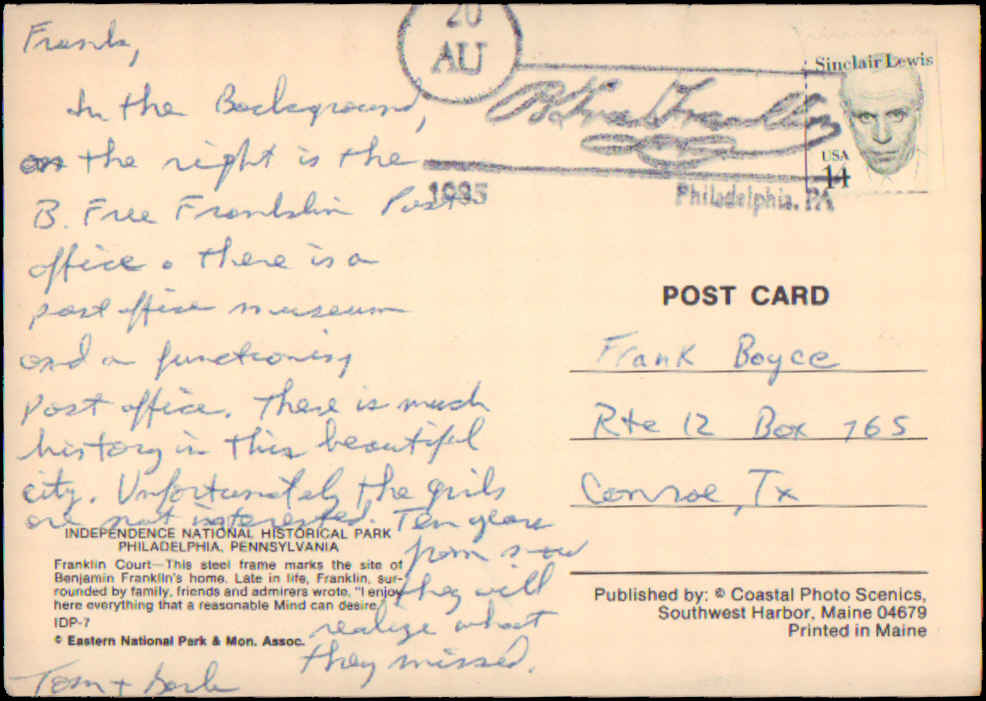 Frank,
In the Background,
on the right is the
B. Free Franklin Post
office. There is a
post office museum
and a functioning
post office. There is much
history in this beautiful
city. Unfortunately the girls
are not interested. Ten years
from now
they will
realize what
they missed.
Tom +
INDEPENDENCE NATIONAL HISTORICAL PARK
PHILADELPHIA, PENNSYLVANIA
Franklin Court—This steel frame marks the site of
Benjamin Franklin's home. Late in life, Franklin, sur-
rounded by family, friends and admirers wrote, "I enjoy
here everything that a reasonable Mind can desire."
IDP-7
© Eastern National Park & Mon. Assoc.
20
AU
B Free Franklin
1985
Philadelphia, PA
Sinclair Lewis
USA
14
POST CARD
Frank Boyce
Rte 12 Box 765
Conroe, Tx
Published by: © Coastal Photo Scenics,
Southwest Harbor, Maine 04679
Printed in Maine